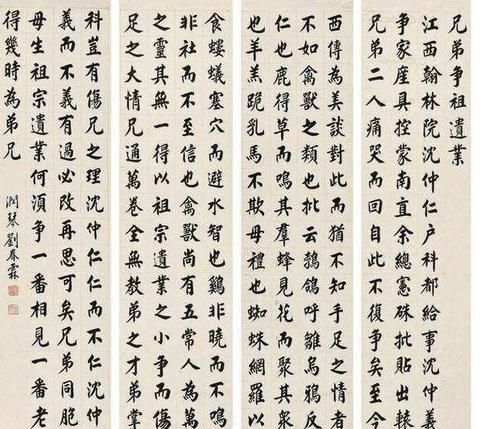 兄弟争祖遺業
江西翰林院沈仲仁户科都給事沈仲義
争家産具控蒙南直余總憲硃批貼出轅
兄弟二人痛哭而回自此不復争矣至今
西傳為美談對此而猶不知手足之情者
不如禽獸之類也批云鵓鴿呼雛烏鴉反
仁也鹿得草而鳴其羣蜂見花而聚其衆
也羊羔跪乳馬不欺母禮也蜘蛛網羅以
食螻蟻塞穴而避水智也鷄非曉而不鳴
非社而不至信也禽獸尚有五常人為萬
之靈其無一得以祖宗遺業之小争而傷
足之大情兄通萬卷全無教弟之才弟掌
科豈有傷兄之理沈仲仁仁而不仁沈仲
義而不義有過必改再思可矣兄弟同胞
母生祖宗遺業何湏争一番相見一番老
得幾時為弟兄
潤琴劉春霖